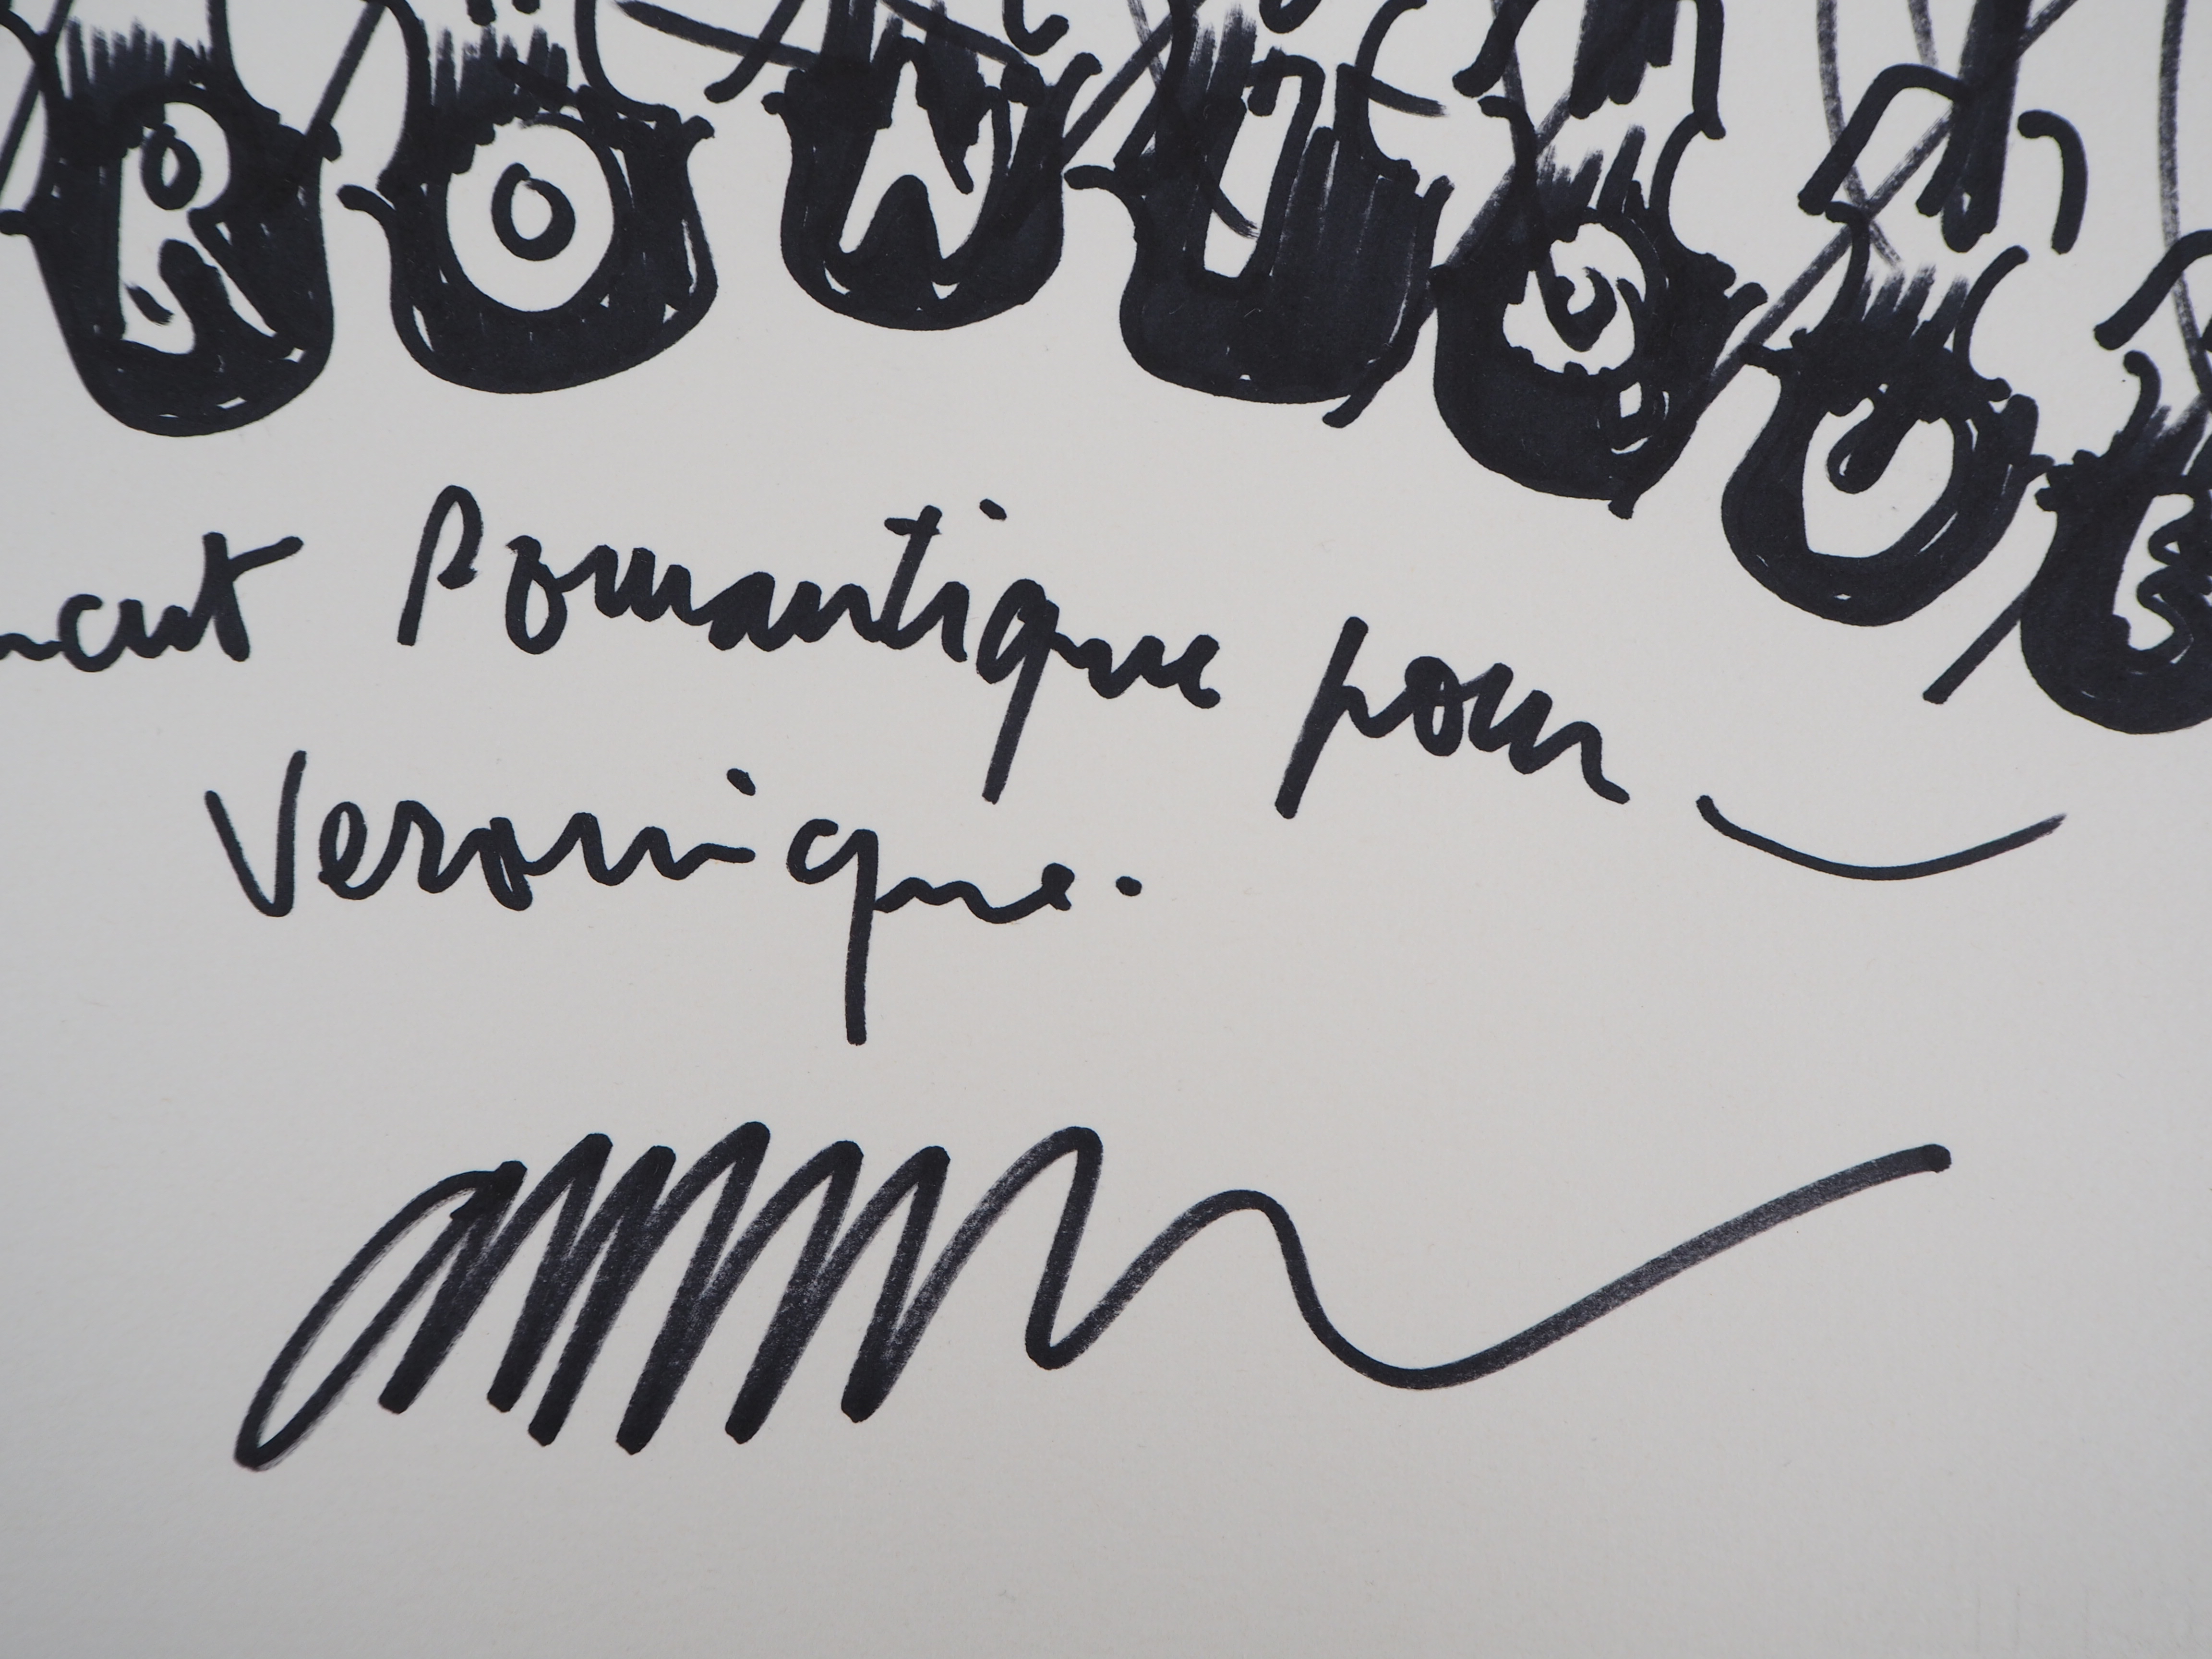 RONIQUE
ment Romantique pour
Veronique.